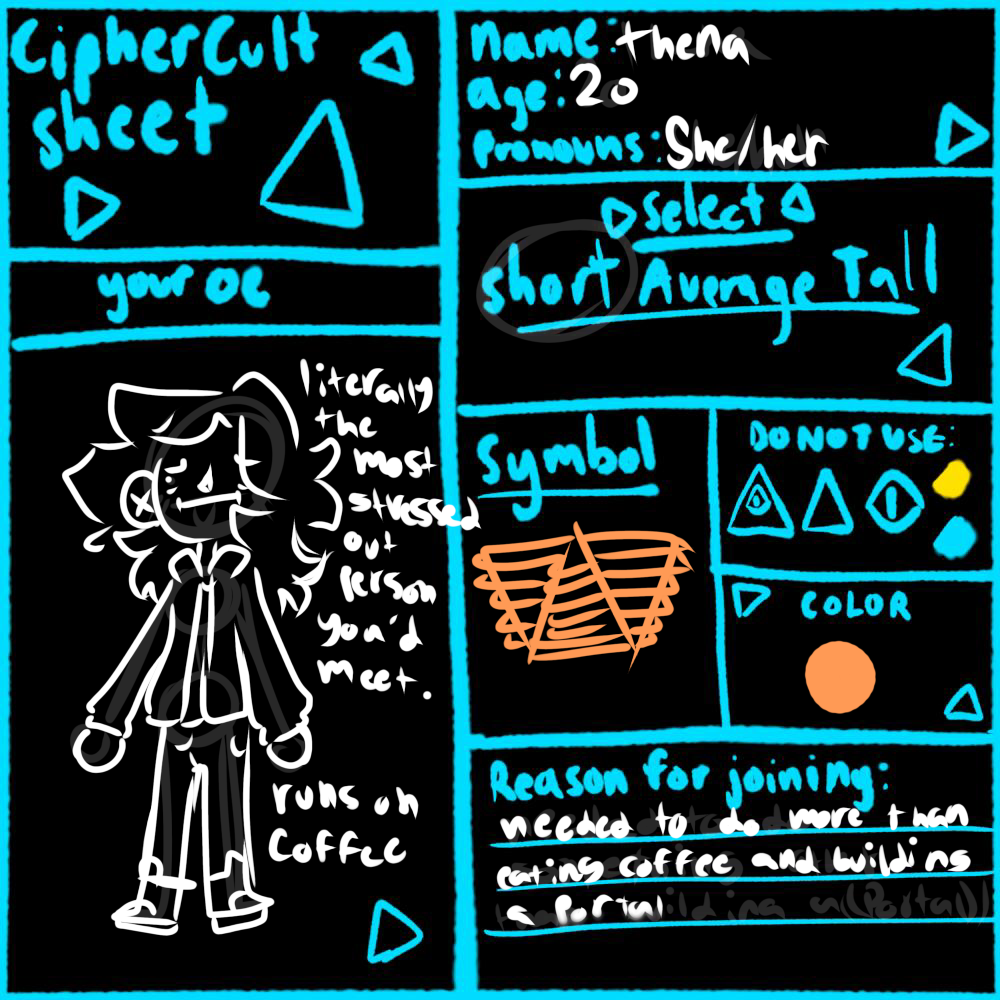 CipherCult
sheet
your OC
literally
the
most
stressed
out
person
you'd
meet.
runs on
coffee
name: thena
age: 20
pronouns: She/her
select
short Average Tall
Symbol
DO NOT USE:
COLOR
Reason for joining:
needed to do more than
eating coffee and building
a Portal